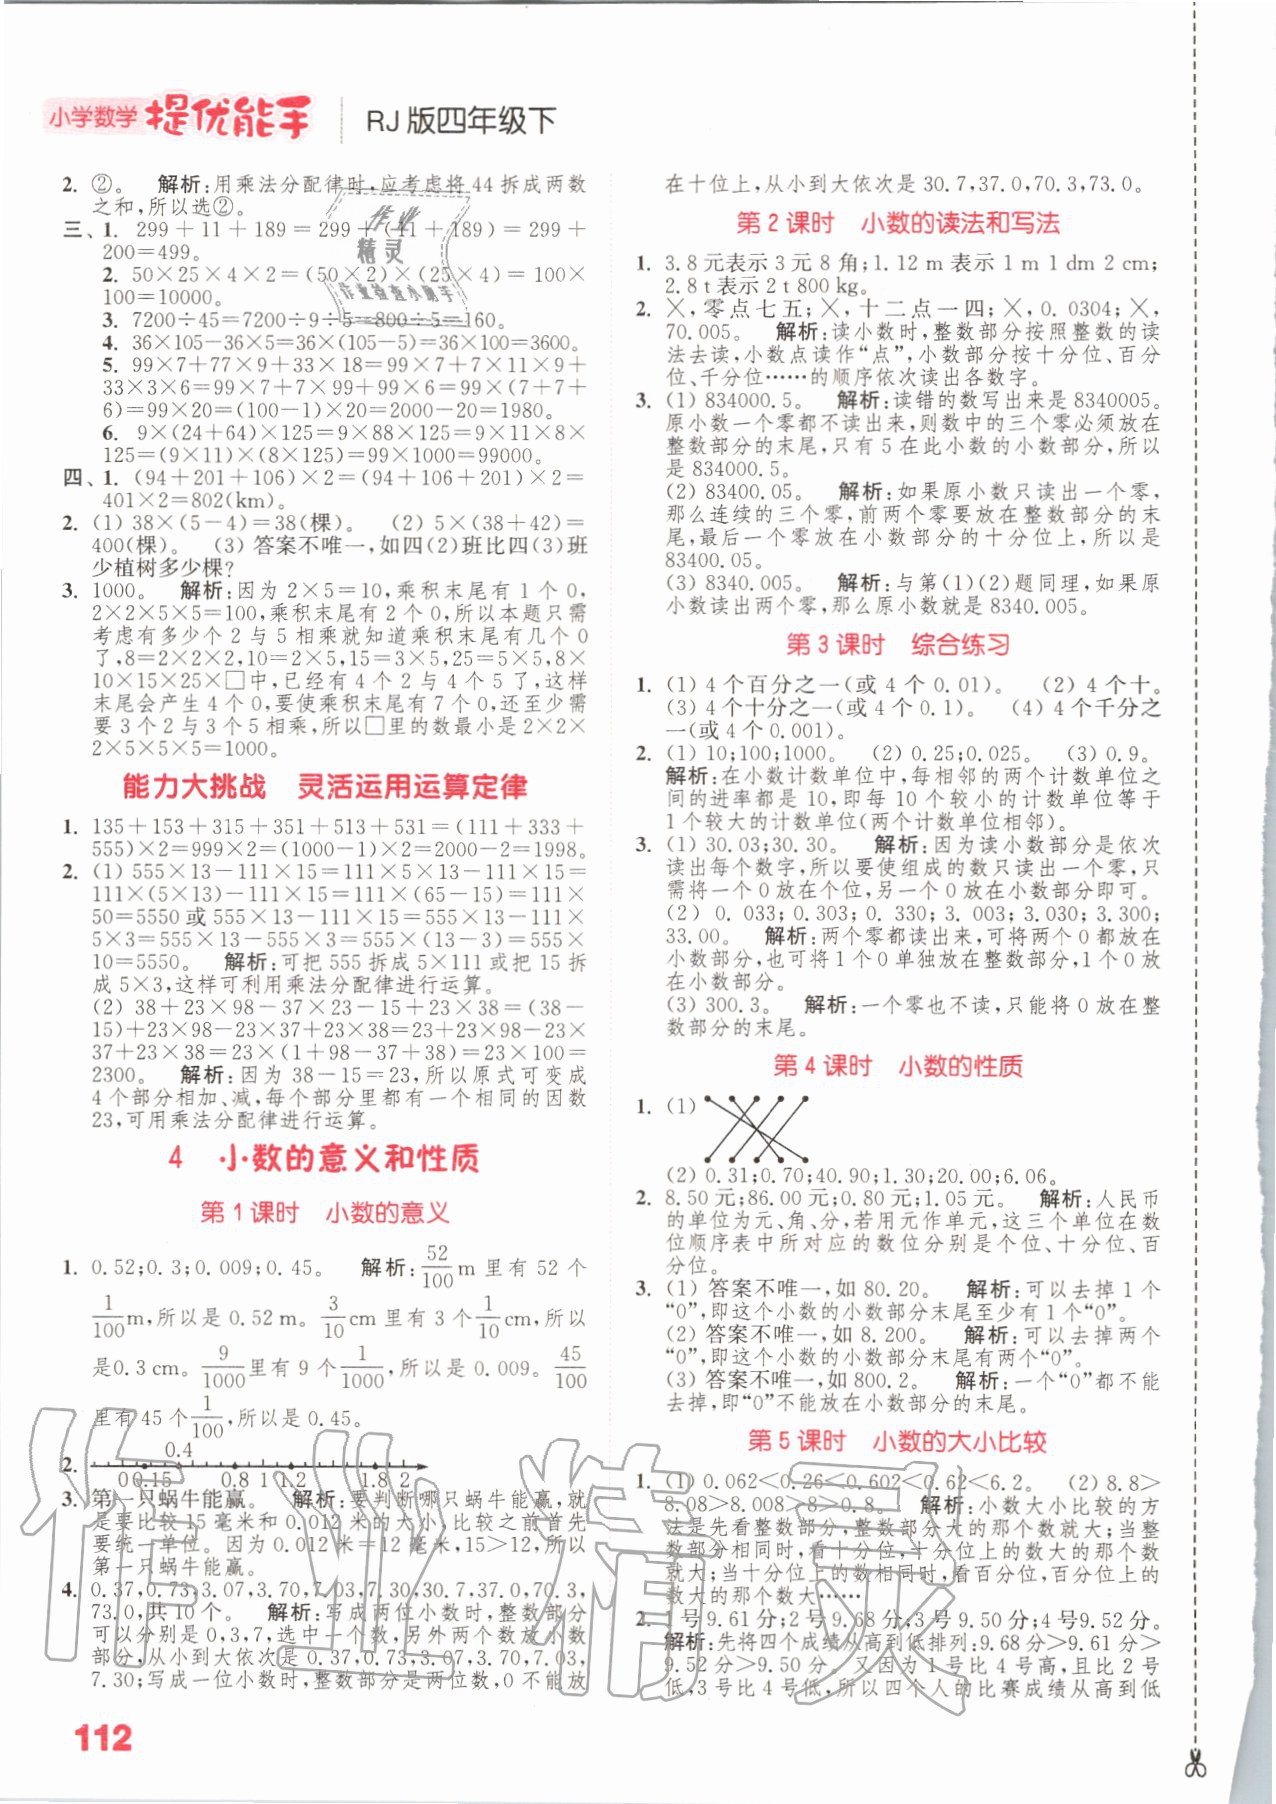 小学数学 提优能手 RJ版四年级下
2. ②。 解析:用乘法分配律时,应考虑将44拆成两数
之和,所以选②。
三、1. 299+11+189=299+(11+189)=299+
200=499。
2. 50×25×4×2=(50×2)×(25×4)=100×
100=10000。
3. 7200÷45=7200÷9÷5=800÷5=160。
4. 36×105-36×5=36×(105-5)=36×100=3600。
5. 99×7+77×9+33×18=99×7+7×11×9+
33×3×6=99×7+7×99+99×6=99×(7+7+
6)=99×20=(100-1)×20=2000-20=1980。
6. 9×(24+64)×125=9×88×125=9×11×8×
125=(9×11)×(8×125)=99×1000=99000。
四、1. (94+201+106)×2=(94+106+201)×2=
401×2=802(km)。
2. (1) 38×(5-4)=38(棵)。 (2) 5×(38+42)=
400(棵)。 (3) 答案不唯一,如四(2)班比四(3)班
少植树多少棵?
3. 1000。 解析:因为2×5=10,乘积末尾有1个0,
2×2×5×5=100,乘积末尾有2个0,所以本题只需
考虑有多少个2与5相乘就知道乘积末尾有几个0
了,8=2×2×2,10=2×5,15=3×5,25=5×5,8×
10×15×25×□中,已经有4个2与4个5了,这样
末尾会产生4个0,要使乘积末尾有7个0,还至少需
要3个2与3个5相乘,所以□里的数最小是2×2×
2×5×5×5=1000。
能力大挑战 灵活运用运算定律
1. 135+153+315+351+513+531=(111+333+
555)×2=999×2=(1000-1)×2=2000-2=1998。
2. (1) 555×13-111×15=111×5×13-111×15=
111×(5×13)-111×15=111×(65-15)=111×
50=5550或555×13-111×15=555×13-111×
5×3=555×13-555×3=555×(13-3)=555×
10=5550。 解析:可把555拆成5×111或把15拆
成5×3,这样可利用乘法分配律进行运算。
(2) 38+23×98-37×23-15+23×38=(38-
15)+23×98-23×37+23×38=23+23×98-23×
37+23×38=23×(1+98-37+38)=23×100=
2300。 解析:因为38-15=23,所以原式可变成
4个部分相加、减,每个部分里都有一个相同的因数
23,可用乘法分配律进行运算。
4 小数的意义和性质
第1课时 小数的意义
1. 0.52;0.3;0.009;0.45。 解析:52/100 m里有52个
1/100 m,所以是0.52 m。3/10 cm里有3个1/10 cm,所以
是0.3 cm。9/1000里有9个1/1000,所以是0.009。45/100
里有45个1/100,所以是0.45。
2. 0.4
0 0.15 0.8 1 1.2 1.8 2
3. 第一只蜗牛能赢。 解析:要判断哪只蜗牛能赢,就
是要比较15毫米和0.012米的大小,比较之前首先
要统一单位。因为0.012米=12毫米,15>12,所以
第一只蜗牛能赢。
4. 0.37,0.73,3.07,3.70,7.03,7.30,30.7,37.0,70.3,
73.0,共10个。 解析:写成两位小数时,整数部分
可以分别是0,3,7,选中一个数,另外两个数放小数
部分,从小到大依次是0.37,0.73,3.07,3.70,7.03,
7.30;写成一位小数时,整数部分是两位数,0不能放
112
在十位上,从小到大依次是30.7,37.0,70.3,73.0。
第2课时 小数的读法和写法
1. 3.8元表示3元8角;1.12 m表示1 m 1 dm 2 cm;
2.8 t表示2 t 800 kg。
2. ×,零点七五;×,十二点一四;×,0.0304;×,
70.005。 解析:读小数时,整数部分按照整数的读
法去读,小数点读作“点”,小数部分按十分位、百分
位、千分位……的顺序依次读出各数字。
3. (1) 834000.5。 解析:读错的数写出来是8340005。
原小数一个零都不读出来,则数中的三个零必须放在
整数部分的末尾,只有5在此小数的小数部分,所以
是834000.5。
(2) 83400.05。 解析:如果原小数只读出一个零,
那么连续的三个零,前两个零要放在整数部分的末
尾,最后一个零放在小数部分的十分位上,所以是
83400.05。
(3) 8340.005。 解析:与第(1)(2)题同理,如果原
小数读出两个零,那么原小数就是8340.005。
第3课时 综合练习
1. (1) 4个百分之一(或4个0.01)。 (2) 4个十。
(3) 4个十分之一(或4个0.1)。 (4) 4个千分之
一(或4个0.001)。
2. (1) 10;100;1000。 (2) 0.25;0.025。 (3) 0.9。
解析:在小数计数单位中,每相邻的两个计数单位之
间的进率都是10,即每10个较小的计数单位等于
1个较大的计数单位(两个计数单位相邻)。
3. (1) 30.03;30.30。 解析:因为读小数部分是依次
读出每个数字,所以要使组成的数只读出一个零,只
需将一个0放在个位,另一个0放在小数部分即可。
(2) 0.033;0.303;0.330;3.003;3.030;3.300;
33.00。 解析:两个零都读出来,可将两个0都放在
小数部分,也可将1个0单独放在整数部分,1个0放
在小数部分。
(3) 300.3。 解析:一个零也不读,只能将0放在整
数部分的末尾。
第4课时 小数的性质
1. (1)
(2) 0.31;0.70;40.90;1.30;20.00;6.06。
2. 8.50元;86.00元;0.80元;1.05元。 解析:人民币
的单位为元、角、分,若用元作单元,这三个单位在数
位顺序表中所对应的数位分别是个位、十分位、百
分位。
3. (1) 答案不唯一,如80.20。 解析:可以去掉1个
“0”,即这个小数的小数部分末尾至少有1个“0”。
(2) 答案不唯一,如8.200。 解析:可以去掉两个
“0”,即这个小数的小数部分末尾有两个“0”。
(3) 答案不唯一,如800.2。 解析:一个“0”都不能
去掉,即“0”不能放在小数部分的末尾。
第5课时 小数的大小比较
1. (1) 0.062<0.26<0.602<0.62<6.2。 (2) 8.8>
8.08>8.008>8>0.8。 解析:小数大小比较的方
法是先看整数部分,整数部分大的那个数就大;当整
数部分相同时,看十分位,十分位上的数大的那个数
就大;当十分位上的数相同时,看百分位,百分位上的
数大的那个数大……
2. 1号9.61分;2号9.68分;3号9.50分;4号9.52分。
解析:先将四个成绩从高到低排列:9.68分>9.61分>
9.52分>9.50分。又因为1号比4号高,且比2号
低,3号比4号低,所以四个人的比赛成绩从高到低
作业
精灵
作业检查小助手
作业精灵